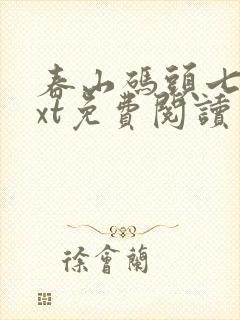 春山碼頭七
xt免費閱讀
徐會蘭